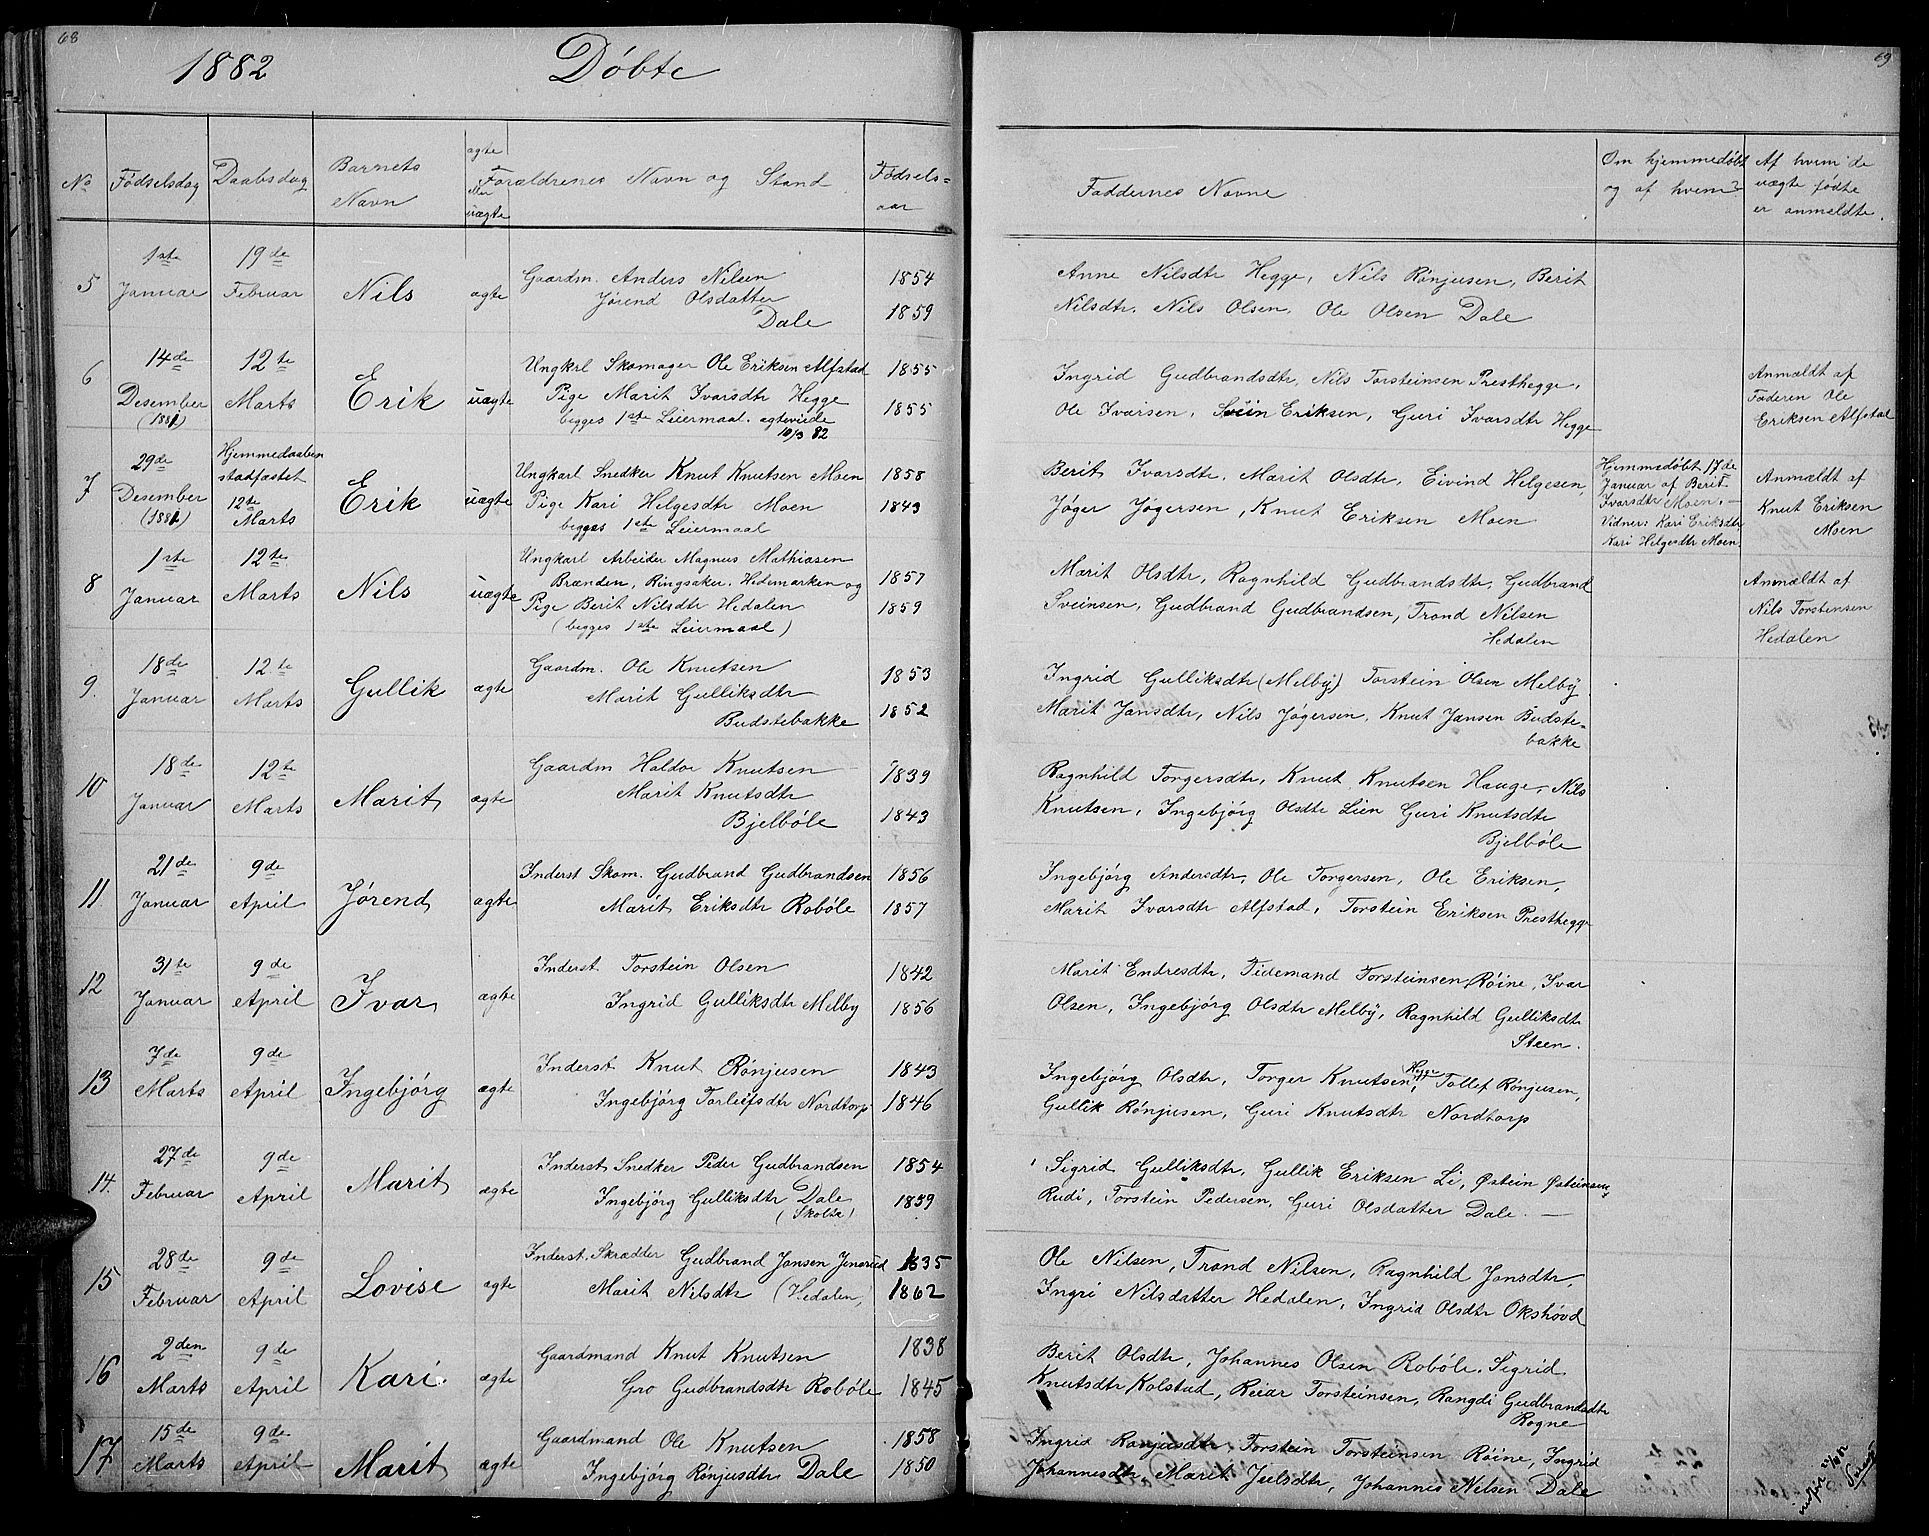 68
1882 Döbte
No
Fødselsdag
Daabsdag
Barnets
Navn
ægte
eller
uægte
Forældrenes Navn og Stand
Fødsels=
aar
5
1ste
Januar
19de
Februar
Nils
ægte
Gaardm. Anders Nilsen
Jørend Olsdatter
Dale
1854
1859
6
14de
Desember
(1881)
12te
Marts
Erik
uægte
Ungkrl Skomager Ole Eriksen Alfstad
Pige Marit Ivarsdtr Hegge
begges 1ste Leiermaal. ægteviede
10/3 82
1855
1855
7
29de
Desember
(1881)
Hjemmedaaben
stadfæstet
12te
Marts
Erik
uægte
Ungkarl Snedker Knut Knutsen Moen
Pige Kari Helgesdtr Moen
begges 1ste Leiermaal
1858
1843
8
1ste
Januar
12te
Marts
Nils
uægte
Ungkarl Arbeider Magnus Mathiasen
Brænden, Ringsaker. Hedemarken og
Pige Berit Nilsdtr Hedalen
(begges 1ste Leiermaal)
1857
1859
9.
18de
Januar
12te
Marts
Gullik
ægte
Gaardm. Ole Knutsen
Marit Gulliksdtr
Budstebakke
1853
1852
10
18de
Januar
12te
Marts
Marit
ægte
Gaardm Haldor Knutsen
Marit Knutsdtr
Bjelböle
1839
1843
11.
21de
Januar
9de
April
Jørend
ægte
Inderst Skom. Gudbrand Gudbrandsen
Marit Eriksdtr Roböle
1856
1857
12
31te
Januar
9de
April
Ivar
ægte
Inderst Torstein Olsen
Ingrid Gulliksdtr Melby
1842
1856
13
7de
Marts
9de
April
Ingebjörg
ægte
Inderst Knut Rønjusen
Ingebjörg Torleifsdtr Nordtorp
1843
1846
14.
27de
Februar
9de
April
Marit
ægte
Inderst Snedker Peder Gudbrandsen
Ingebjörg Gulliksdtr Dale
1854
1859
15
28de
Februar
9de
April
Lovise
ægte
Inderst. Skrædder Gudbrand Jansen
Marit Nilsdtr (Hedalen)
1835
1862
16
2den
Marts
9de
April
Kari
ægte
Gaardmand Knut Knutsen
Gro Gudbrandsdtr Roböle
1838
1845
17
15de
Marts
9de
April
Marit
ægte
Gaardmand Ole Knutsen
Ingebjörg Rønjusdtr Dale
1858
1850
69
Faddernes Navne
Om hjemmedøbt
og af hvem?
Af hvem de
uægte fødte
er anmeldte.
Anne Nilsdtr Hegge, Nils Rønjusen, Berit
Nilsdtr. Nils Olsen. Ole Olsen Dale
Ingrid Gudbrandsdtr, Nils Torsteinsen Presthegge,
Ole Ivarsen, Svein Eriksen, Guri Ivarsdtr Hegge
Anmældt af
Faderen Ole
Eriksen Alfstad
Berit Ivarsdtr, Marit Olsdtr, Eivind Helgesen,
Jöger Jögersen, Knut Eriksen Moen
Hjemmedøbt 17de
Januar af Berit
Ivarsdtr Moen. —
Vidner: Kari Eriksdtr
Kari Helgesdtr Moen.
Anmældt af
Knut Eriksen
Moen
Marit Olsdtr, Ragnhild Gudbrandsdtr, Gudbrand
Sveinsen, Gudbrand Gudbrandsen, Trond Nilsen
Hedalen
Anmældt af
Nils Torstensen
Hedalen
Ingrid Gulliksdtr (Melby) Torstein Olsen Melby
Marit Jansdtr, Nils Jögersen, Knut Jansen Budste-
bakke
Ragnhild Torgersdtr, Knut Knutsen Hauge, Nils
Knutsen, Ingebjörg Olsdtr Lien Guri Knutsdtr
Bjelböle
Ingebjörg Andersdtr, Ole Torgersen, Ole Eriksen,
Marit Ivarsdtr Alfstad, Torstein Eriksen Presthegge
Marit Endresdtr, Tidemand Torsteinsen Röine, Ivar
Olsen, Ingebjörg Olsdtr Melby, Ragnhild Gulliksdtr
Steen.
Ingebjörg Olsdtr, Torger Knutsen Hegge, Tollef Rønjusen,
Gullik Rønjusen, Guri Knutsdtr Nordtorp
Sigrid Gulliksdtr, Gullik Eriksen Li, Østein Østeinsen
Rudi, Torstein Pedersen, Guri Olsdatter Dale. —
Ole Nilsen, Trond Nilsen, Ragnhild Jansdtr
Ingri Nilsdatter Hedalen, Ingrid Olsdtr Okshövd
Berit Olsdtr, Johannes Olsen Roböle, Sigrid
Knutsdtr Kolstad, Reiar Torsteinsen, Rangdi Gudbrandsdtr
Rogne
Ingrid Rønjusdtr Torstein Torsteinsen Röine, Ingrid
Johannesdtr Marit Juulsdtr, Johannes Nilsen Dale